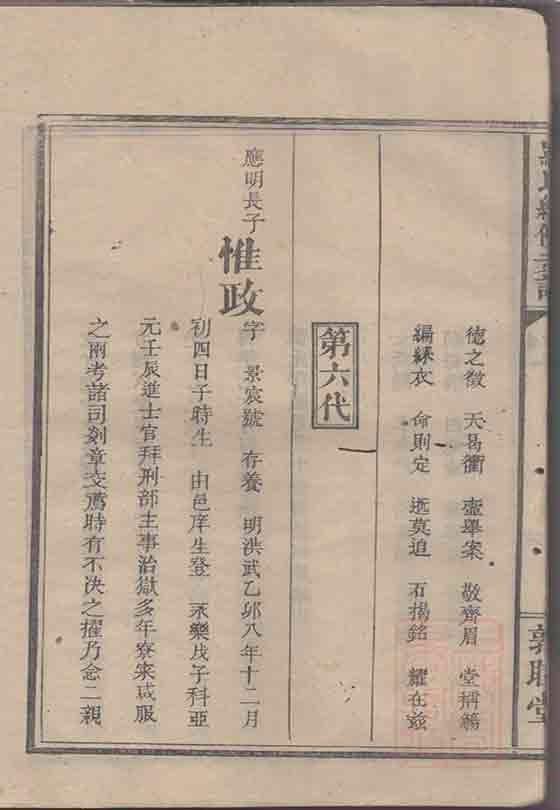 德之徵 天曷衢 壺舉案 敬齊眉 堂稱觴
編綵衣 命則定 逝莫追 石揭銘 耀在玆
第六代
應明長子
惟政
字 景宸號 存養 明洪武乙卯八年十二月
初四日子時生 由邑庠生登 永樂戊子科亞
元壬辰進士官拜刑部主事治獄多年寮寀咸服
之兩考諸司剡章交薦時有不決之擢乃念二親
氏 修 譜
郭 堂